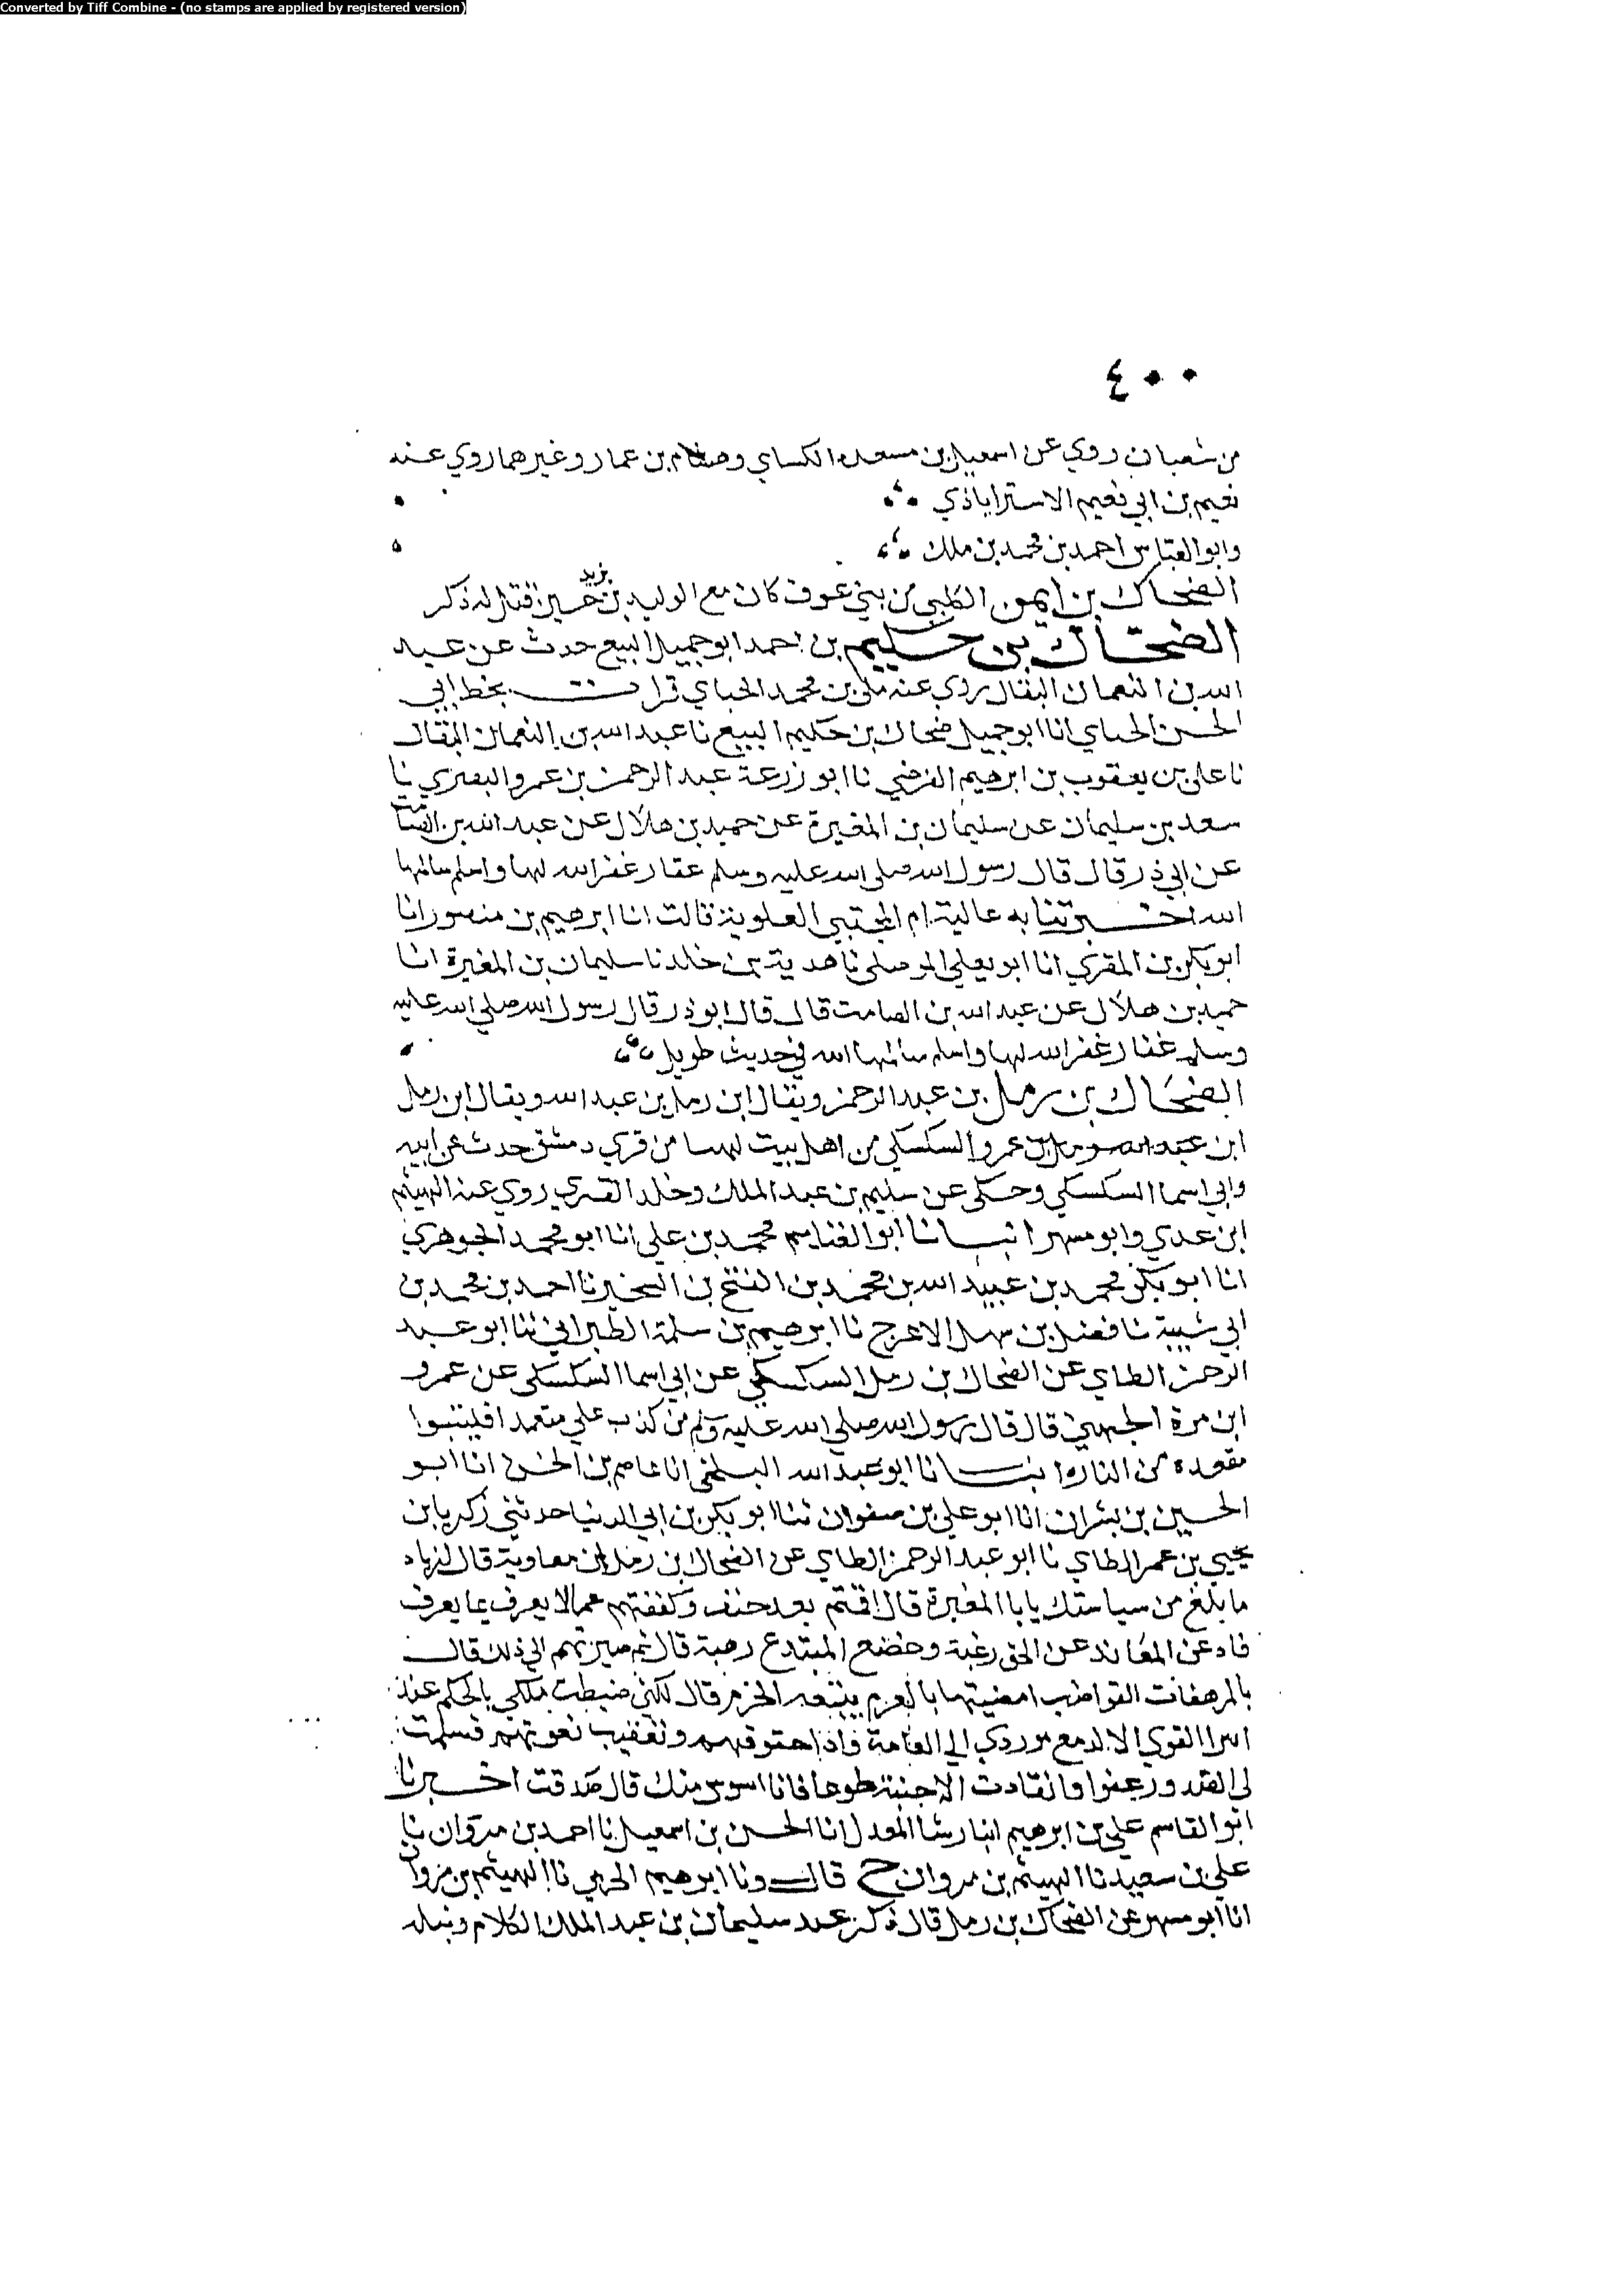 Converted by Tiff Combine - (no stamps are applied by registered version)
٤٠٠
من شعبان روي عن اسمعيل بن مسعدة الكساي وهشام بن عمار وغيرهما روي عنه
نعيم بن ابي نعيم الاستراباذي
وابو العباس احمد بن محمد بن ملك
الضحاك بن ايمن الكلبي من بني عوف كان مع الوليد بن يزيد حسين قتل له ذكر
الضحاك بن حكيم بن احمد ابو جميل البيع حدث عن عبد
الله بن النعمان البقال روي عنه علي بن محمد الحناي قرات بخط ابي
الحسن الحناي انا ابو جميل ضحاك بن حكيم البيع نا عبد الله بن النعمان البقال
نا علي بن يعقوب بن ابرهيم الفرضي نا ابو زرعة عبد الرحمن بن عمرو البصري نا
سعد بن سليمان عن سليمان بن المغيرة عن حميد بن هلال عن عبد الله بن الصامت
عن ابي ذر قال قال رسول الله صلى الله عليه وسلم غفار غفر الله لها واسلم سالمها
الله اخبرتنا به عالية ام المجتبي العلوية قالت انا ابرهيم بن منصور انا
ابو بكر بن المقري انا ابو يعلي الموصلي نا هدبة بن خلد نا سليمان بن المغيرة انا
حميد بن هلال عن عبد الله بن الصامت قال قال ابو ذر قال رسول الله صلي الله عليه
وسلم غفار غفر الله لها واسلم سالمها الله في حديث طويل
الضحاك بن رمل بن عبد الرحمن ويقال ابن رمل بن عبد الله ويقال ابن رمل
ابن عبد الله بن عمرو السكسكي من اهل بيت لهيا من قري دمشق حدث عن ابيه
وابي اسما السكسكي وحكي عن سليم بن عبد الملك وخلد القسري روي عنه الهيثم
ابن عدي وابو مسهر انبانا ابو الغنايم محمد بن علي انا ابو محمد الجوهري
انا ابو بكر محمد بن عبيد الله بن محمد بن الفتح بن الشخير نا احمد بن محمد بن
ابي شيبة نا فضل بن سهل الاعرج نا ابرهيم بن سلمة الطبراني ثنا ابو عبد
الرحمن الطاي عن الضحاك بن رمل السكسكي عن ابي اسما السكسكي عن عمرو
ابن مرة الجهني قال قال رسول الله صلي الله عليه وسلم من كذب علي متعمدا فليتبوا
مقعده من النار انبانا ابو عبد الله البلخي انا عاصم بن الحسن انا ابو
الحسين بن بشران انا ابو علي بن صفوان ثنا ابو بكر بن ابي الدنيا حدثني زكريا بن
يحيي بن عمر الطاي نا ابو عبد الرحمن الطاي عن الضحاك بن رمل ان معاوية قال لزياد
ما بلغ من سياستك يا با المغيرة قال اقمتهم بعد جنف وكففتهم عما لا يعرف بما يعرف
فاذعن المعاند عن الحق رغبة وخضع المبتدع رهبة قال ثم صيرتهم الي ذلك قال
بالمرهفات القواضب امضيتها بالعزم يتبعه الحزم قال لكني ضبطت ملكي بالحلم عند
اسرا القوي مع موردي الي العامة في اذا حقوقهم فسلمت
لي الصدور عفوا وانقادت الاجنة طوعا فانا اسوس منك قال صدقت اخبرنا
ابو القاسم علي بن ابرهيم انبا رشا المعدل انا الحسن بن اسمعيل نا احمد بن مروان نا
علي بن سعيد نا الهيثم بن مروان ح قال ونا ابرهيم الحربي نا الهيثم بن مروان
انا ابو مسهر عن الضحاك بن رمل قال ذكر عند سليمان بن عبد الملك الكلام ونبله